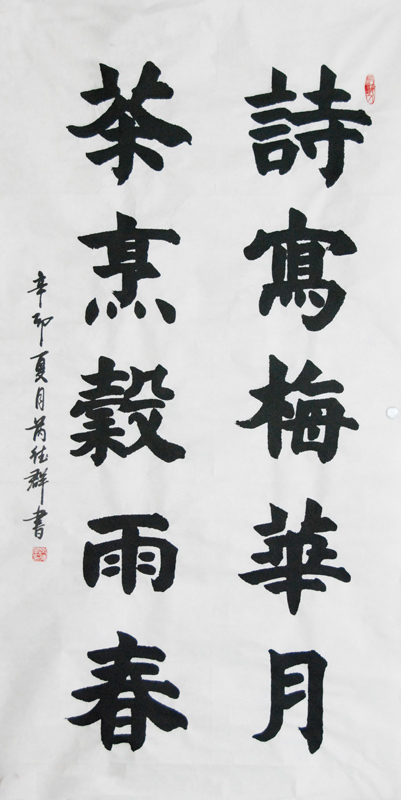 詩寫梅華月
茶烹穀雨春
辛卯夏月群書